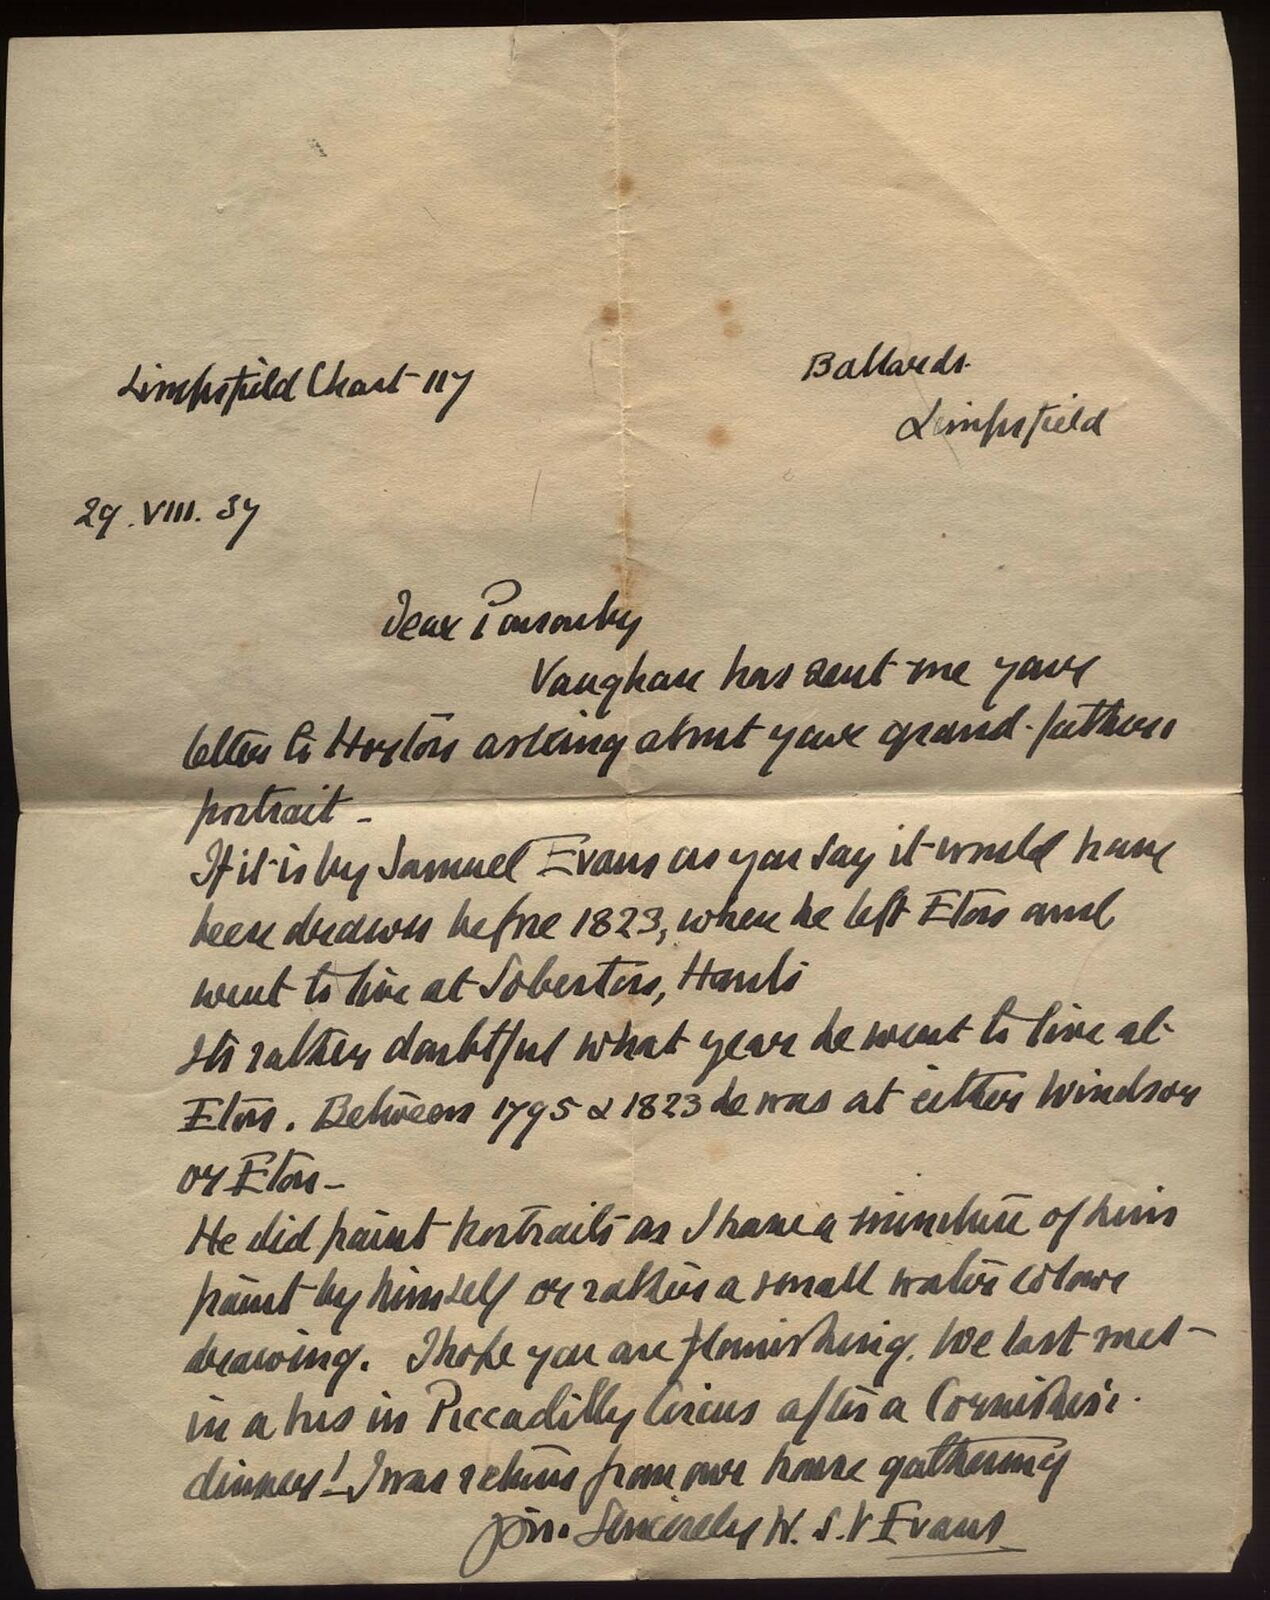 Limpsfield Chart 117
Ballards.
Limpsfield
29. VIII. 37
Dear Ponsonby
Vaughan has sent me your
letter to Horton asking about your grand-fathers
portrait -
If it is by Samuel Evans as you say it would have
been drawn before 1823, when he left Eton and
went to live at Soberton, Hants
Its rather doubtful what year he went to live at
Eton. Between 1795 & 1823 he was at either Windsor
or Eton -
He did paint portraits as I have a miniature of him
paint by himself or rather a small water colour
drawing. I hope you are flourishing. We last met
in a bus in Piccadilly Circus after a
dinner! I was return from our house gathering
Yrs. Sincerely W. S. V Evans